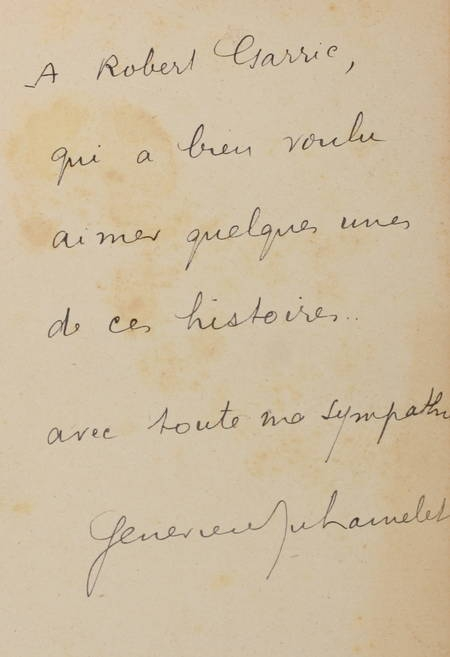 A Robert Garric,
qui a bien voulu
aimer quelques unes
de ces histoires..
avec toute ma sympathie
Geneviève Duhamelet